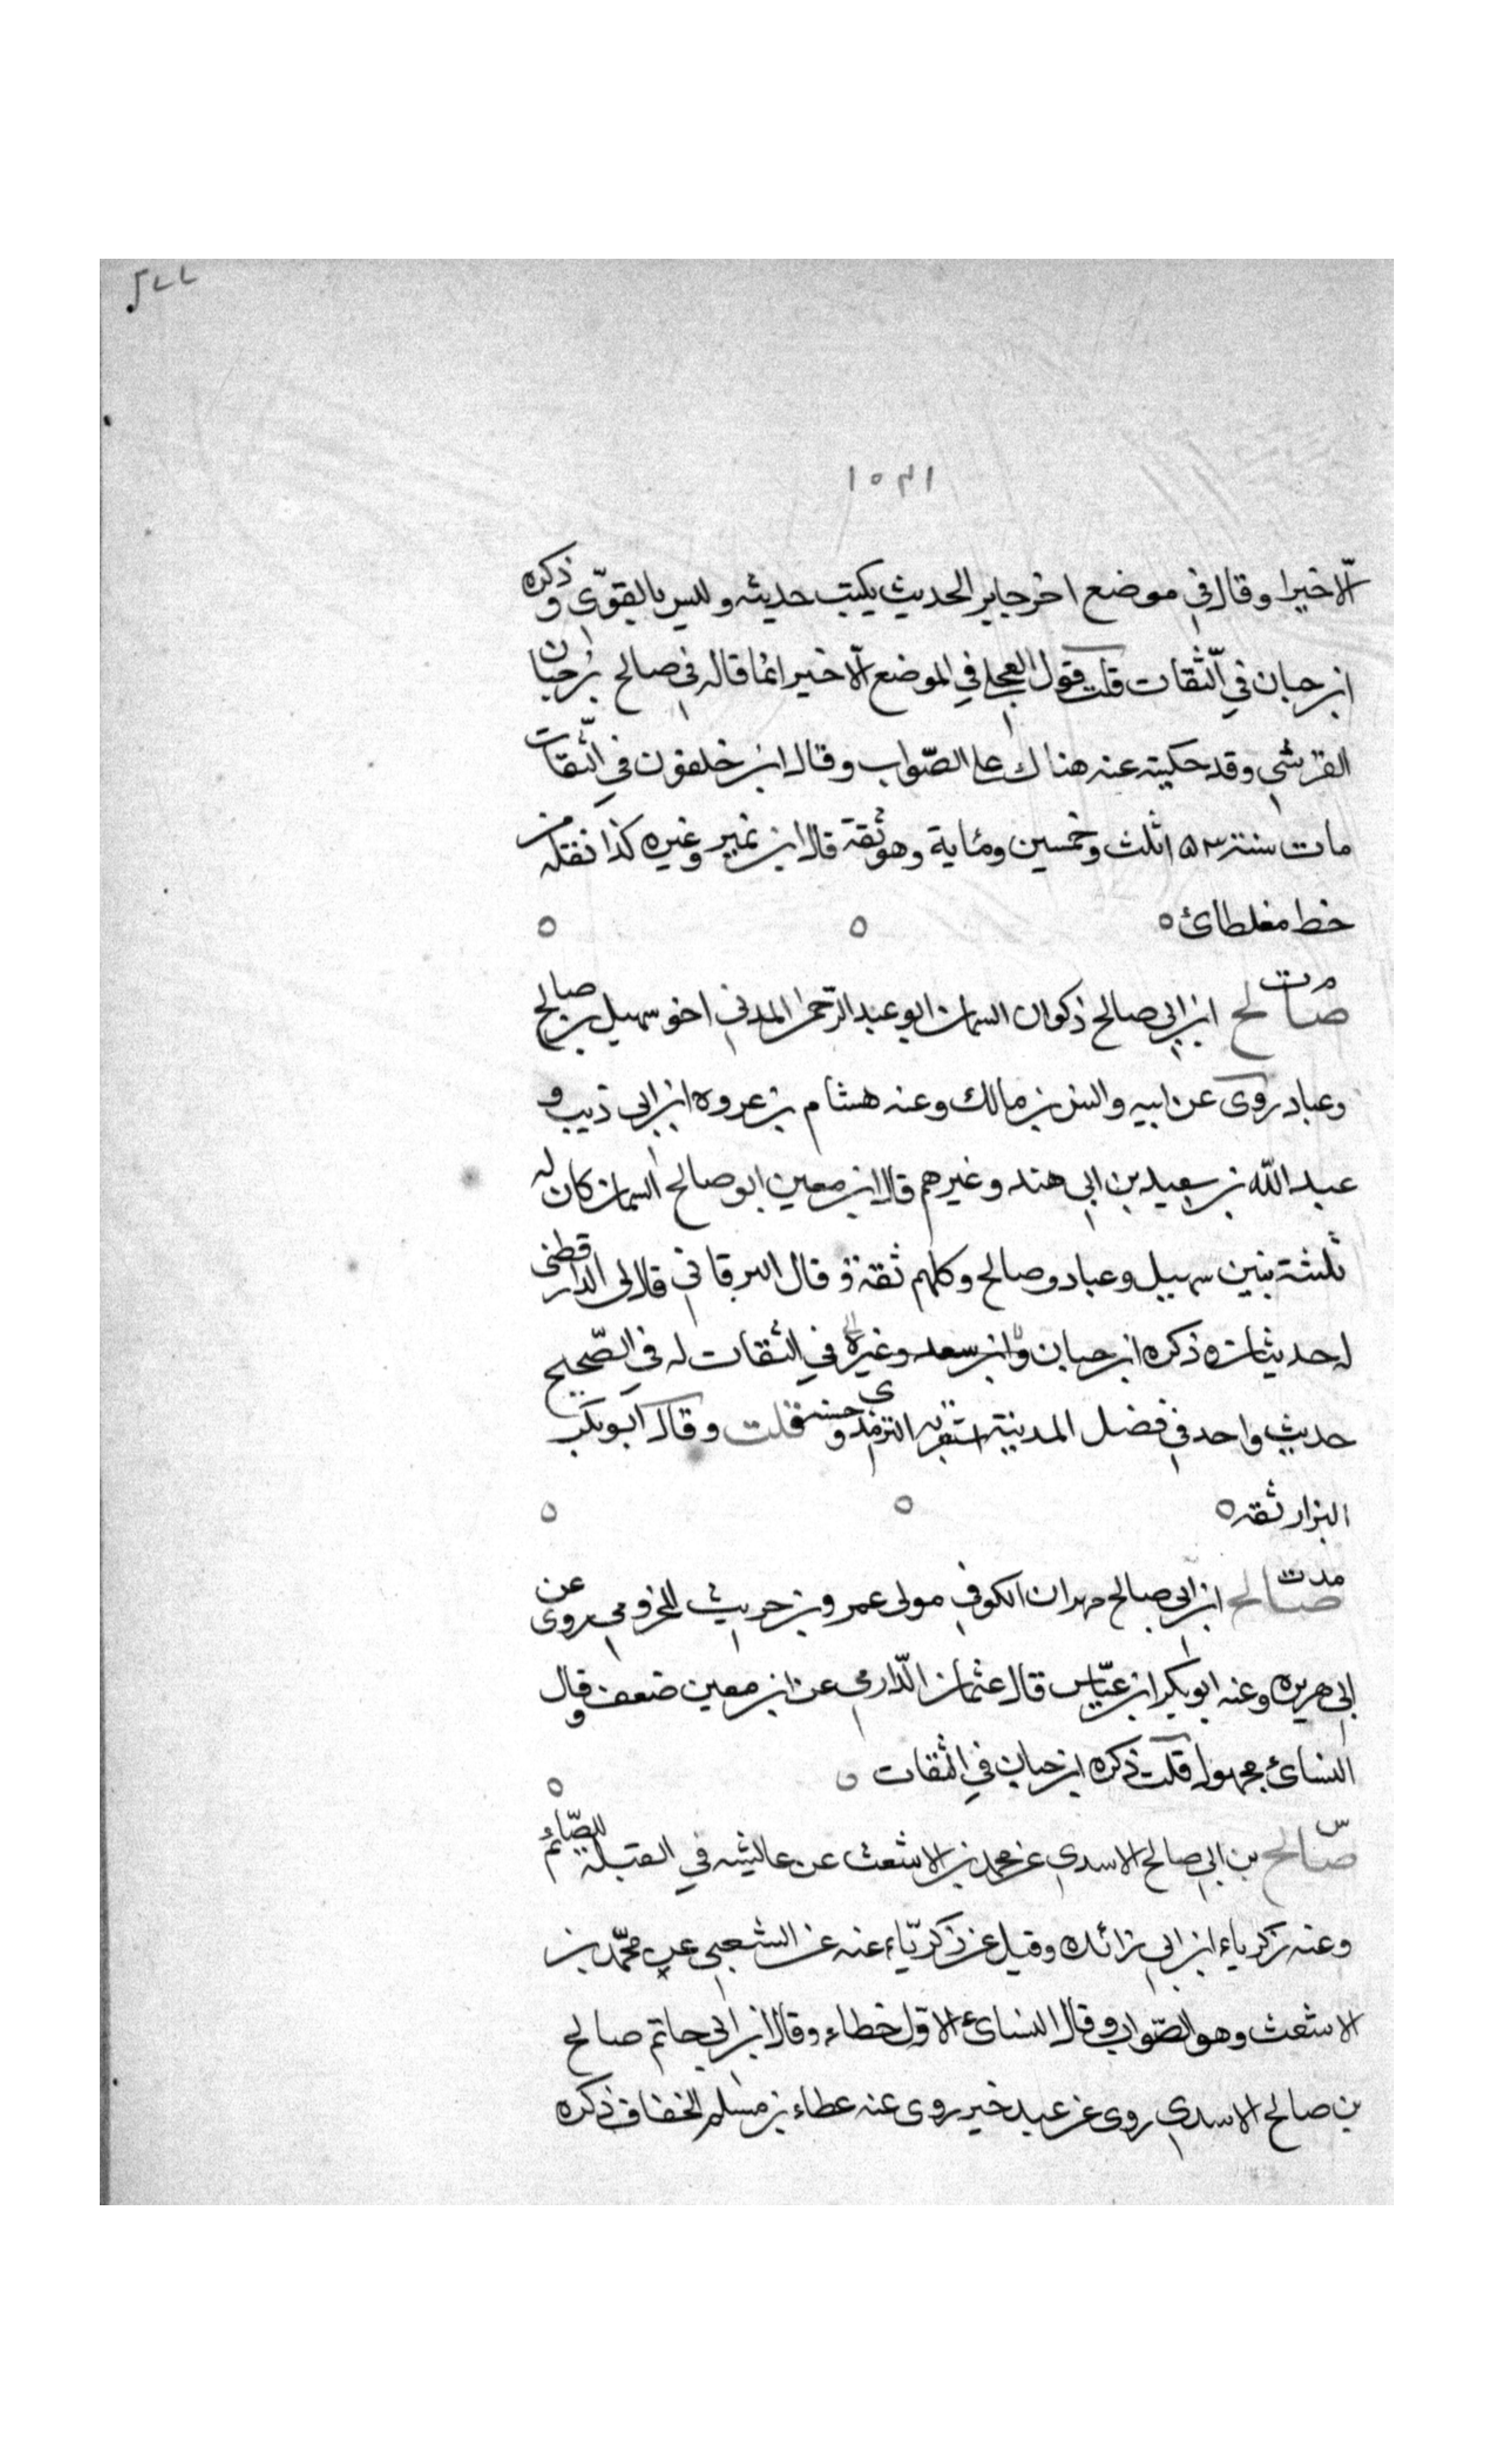 ١٥٣١
الّا خيرا وقال في موضع اخر جايز الحديث يكتب حديثه وليس بالقوّي وذكره
ابن حبان في الثّقات قلت قول العجلي في الموضع الّاخير انما قاله في صالح بن حبان
القرشي وقد حكيته عنه هناك على الصّواب وقال ابن خلفون في الثّقات
مات سنة ١٥٣ ثلث وخمسين ومئاية وهو ثقة قال ابن نمير وغيره كذا نقلته من
خط مغلطائ ٥ ٥ ٥
م ت
صالح ابن ابي صالح ذكوان السمان ابو عبد الرّحمن المدني اخو سهيل بن صالح
وعباد روى عن ابيه وانس بن مالك وعنه هشام بن عروه ابن ابي ذيب و
عبد الله بن سعيد بن ابي هند وغيرهم قال ابن معين ابو صالح السمان كان له
ثلثة بنين سهيل وعباد وصالح وكلهم ثقة وقال البرقاني قال لي الدارقطني
له حديثان ذكره ابن حبان وابن سعد وغيره في الثقات له في الصّحيح
حديث واحد في فضل المدينة استغربه الترمذي وحسنه قلت وقال ابو بكر
البزار ثقه ٥ ٥ ٥
مدت
صالح ابن ابي صالح مهران الكوفي مولى عمرو بن حريث المخزومي روى عن
ابي هريره وعنه ابو بكر ابن عيّاس قال عثمان الدّارمي عن ابن معين ضعف وقال
النسائ مجهول قلت ذكره ابن حبان في الثقات ٥ ٥
س
صالح بن ابي صالح الاسدي عن محمد بن الاشعث عن عايشه في القبلة للصّائم
وعنه زكرياء ابن ابي زائده وقيل عن زكريّاء عنه عن الشعبي عن محمّد بن
الاشعث وهو الصّواب وقال النسائ الاوّل خطاء وقال ابن ابي حاتم صالح
بن صالح الاسدي روى عن عبد خير روى عنه عطاء بن مسلم الخفاف ذكره